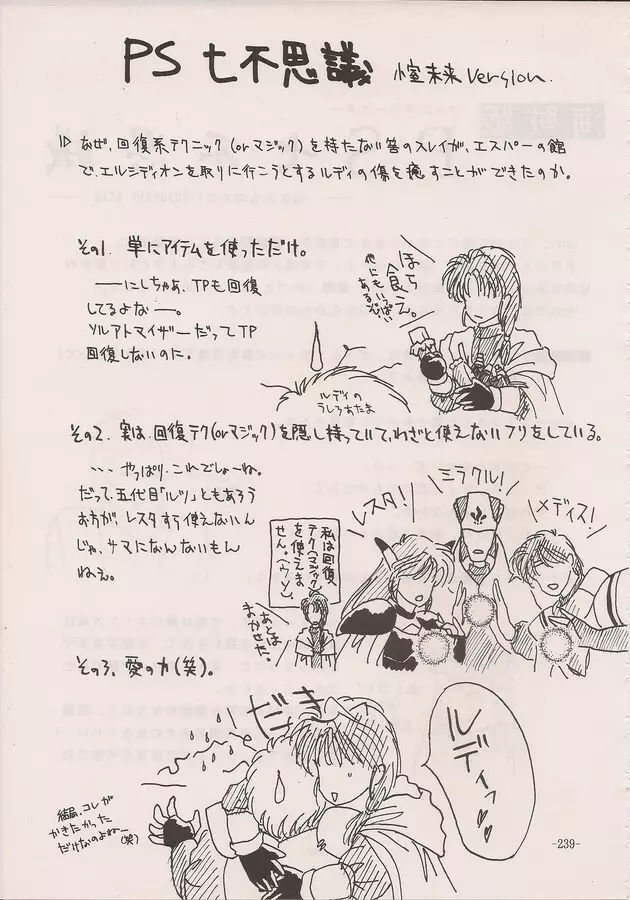 PS 七不思議 小室未来 Version.
なぜ、回復系テクニック(orマジック)を持たない筈のスレイが、エスパーの館
で、エルシディオンを取りに行こうとするルディの傷を癒すことができたのか。
その1. 単にアイテムを使っただけ。
——にしちゃあ、TPも回復
してるよな——。
ソルアトマイザーだってTP
回復しないのに。
ほら
食らえ。
他にもいっぱい
あるぞ。
ルディの
うしろあたま
その2. 実は、回復テク(orマジック)を隠し持っていて、わざと使えないフリをしている。
・・・やっぱり、これでしょーね。
だって、五代目「ルツ」ともあろう
お方が、レスタすら使えないん
じゃ、サマになんないもん
ねぇ。
レスタ!
ミラクル!
メディス!
私は回復
テク(マジック)
を使えま
せん。(ウソ)
あとは
まかせた。
その3. 愛の力(笑)。
だき
ルディっ♥♥
結局、コレが
かきたかった
だけなのよねー
(笑)
-239-